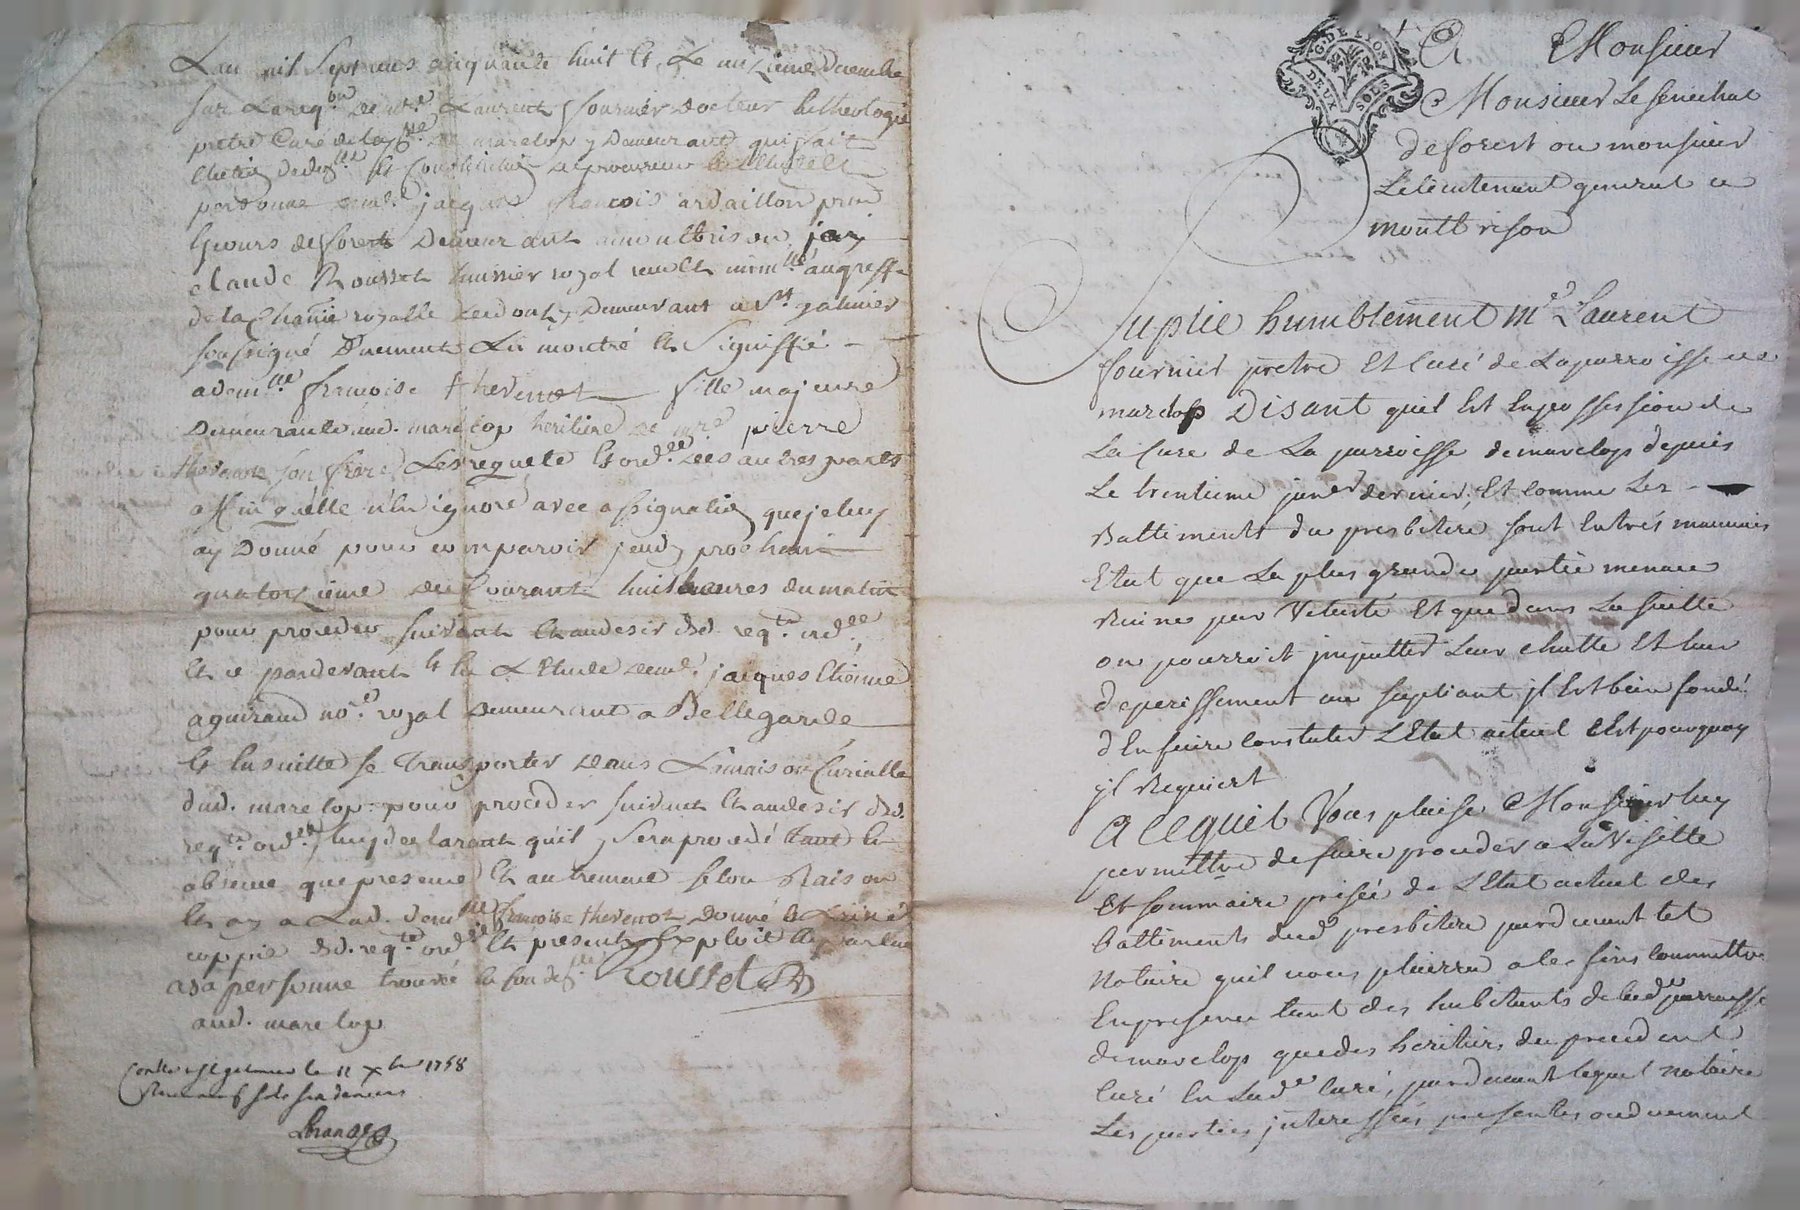 L'an mil sept cens cinquante huit et le onzieme Decembre
sur la req.on de m.re Laurent fournier Docteur en theologie
pretre Curé de la p.sse de mareclop y Demeurant qui fait
election de dom.lle et constitution de procureur
personne de m.e jacques francois ardaillon pr
Ez cours de forests Demeurant a montbrison, je
claude Rousset huissier royal immlé au greffe
de la Chanie royalle de donzy Demeurant a St galmier
soussigné Duement Lu montré et Signiffié
a dem.lle francoise thevenot fille majeure
Demeurante aud. mareclop heritiere de m.re pierre
thevenot son frere, Les requete et ord.ce des autres parts
a ce quelle n'en ignore avec assignation que je luy
ay Donné pour comparoir jeudy prochain
quatorzieme du Courant huit heures du matin
pour proceder suivant et au desir desd. req.te ord.ce
et ce pardevant et en L'Etude de m.e jacques Etienne
aguiraud no.re royal Demeurant a Bellegarde
et ensuitte se transporter dans La maison Curialle
dud. mareclop pour proceder suivant et au desir desd.
req.te ord.ce, luy declarant qu'il y sera procedé tant en
absence que presence et autrement selon Raison
et ay a Lad. dem.lle francoise thevenot Donné et Laissé
coppie desd. req.te ord.ce et present Exploit en parlant
a sa personne trouvée en son dom.lle Rousset
aud. mareclop
Conlle a St galmier le 11 Xbre 1758
Reçu sols six deniers
G. DE LYON
DEUX SOLS
A Monsieur
Monsieur Le senechal
de forest ou monsieur
Le lieutenant general de
montbrison
Suplie humblement m.e Laurent
fournier pretre Et Curé de La parroisse de
mareclop Disant quil Est En possession de
La Cure de La parroisse de mareclop depuis
Le trentieme jan.er dernier, Et comme Les
Battiments du presbitere sont En très mauvais
Etat que La plus grande partie menace
Ruine par Vetusté Et que dans La suitte
on pourroit imputter Leur chutte Et leur
deperissement au supliant, jl Est bien fondé
d'En faire Constater L'Etat actuel C'Est pourquoy
jl Requiert
A Ce quil Vous plaise Monsieur luy
permettre de faire proceder a La Visitte
Et sommaire prisée de L'Etat actuel des
Battiments dud. presbitere pardevant tel
Notaire quil vous plairra a les fins Commettre
En presence tant des habitants de lad.e parroisse
de mareclop que des heritiers du precedent
Curé En Lad.e Cure, pardevant lequel notaire
Les parties jnteressées presentes ou duement